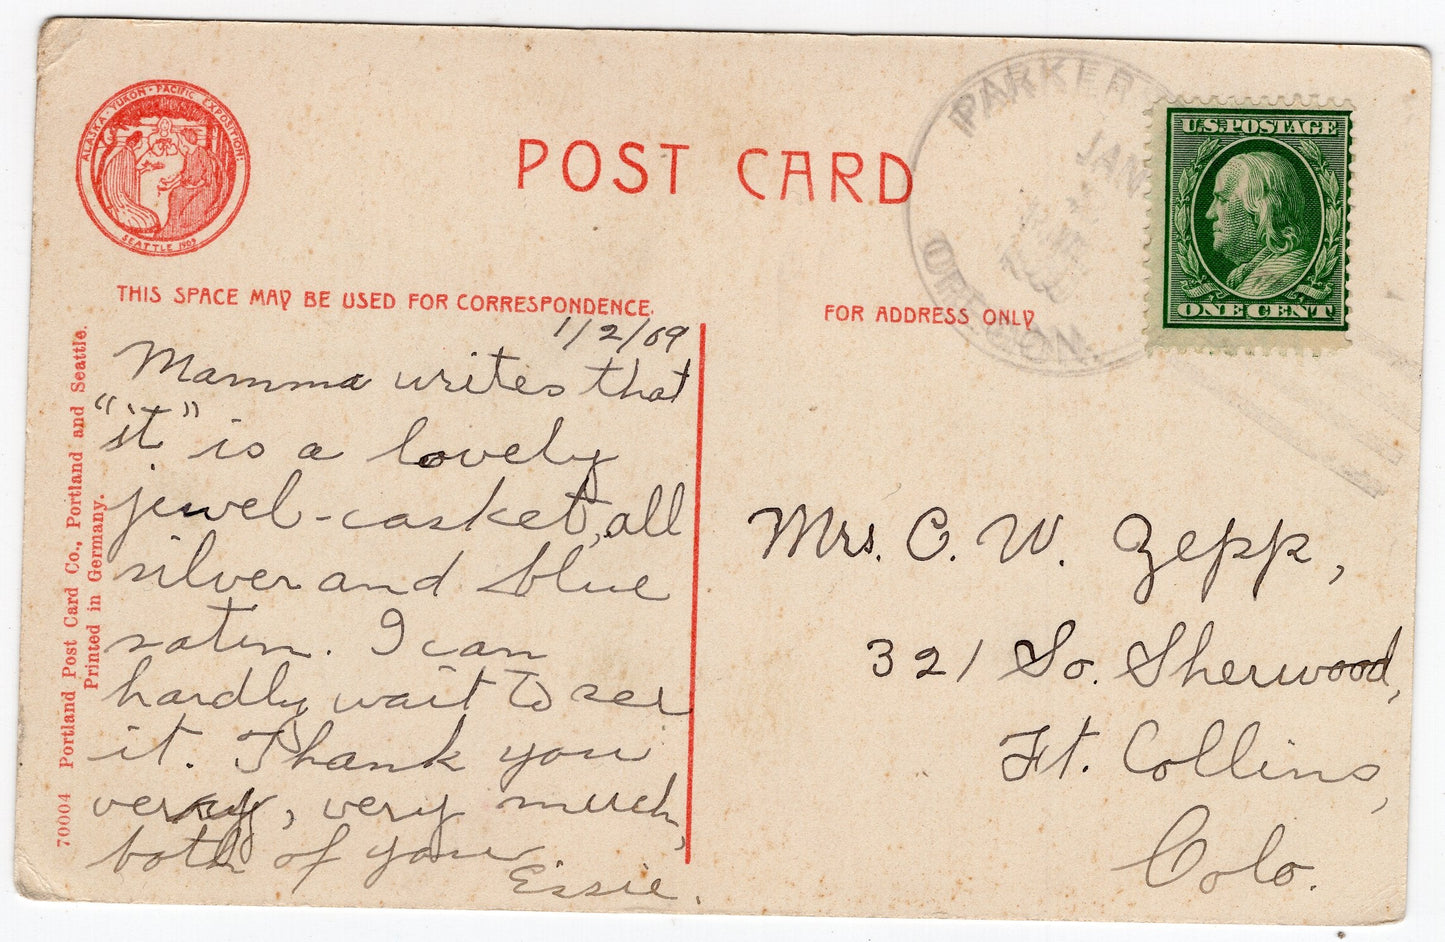 ALASKA · YUKON · PACIFIC EXPOSITION ·
SEATTLE 1909
POST CARD
PARKER
JAN
OREGON.
U.S. POSTAGE
ONE CENT
THIS SPACE MAY BE USED FOR CORRESPONDENCE.
FOR ADDRESS ONLY
1/2/09
Mamma writes that
"it" is a lovely
jewel-casket, all
silver and blue
satin. I can
hardly wait to see
it. Thank you
very, very much,
both of you
Essie.
Mrs. C. W. Zepp,
321 So. Sherwood,
Ft. Collins,
Colo.
70004 Portland Post Card Co., Portland and Seattle.
Printed in Germany.